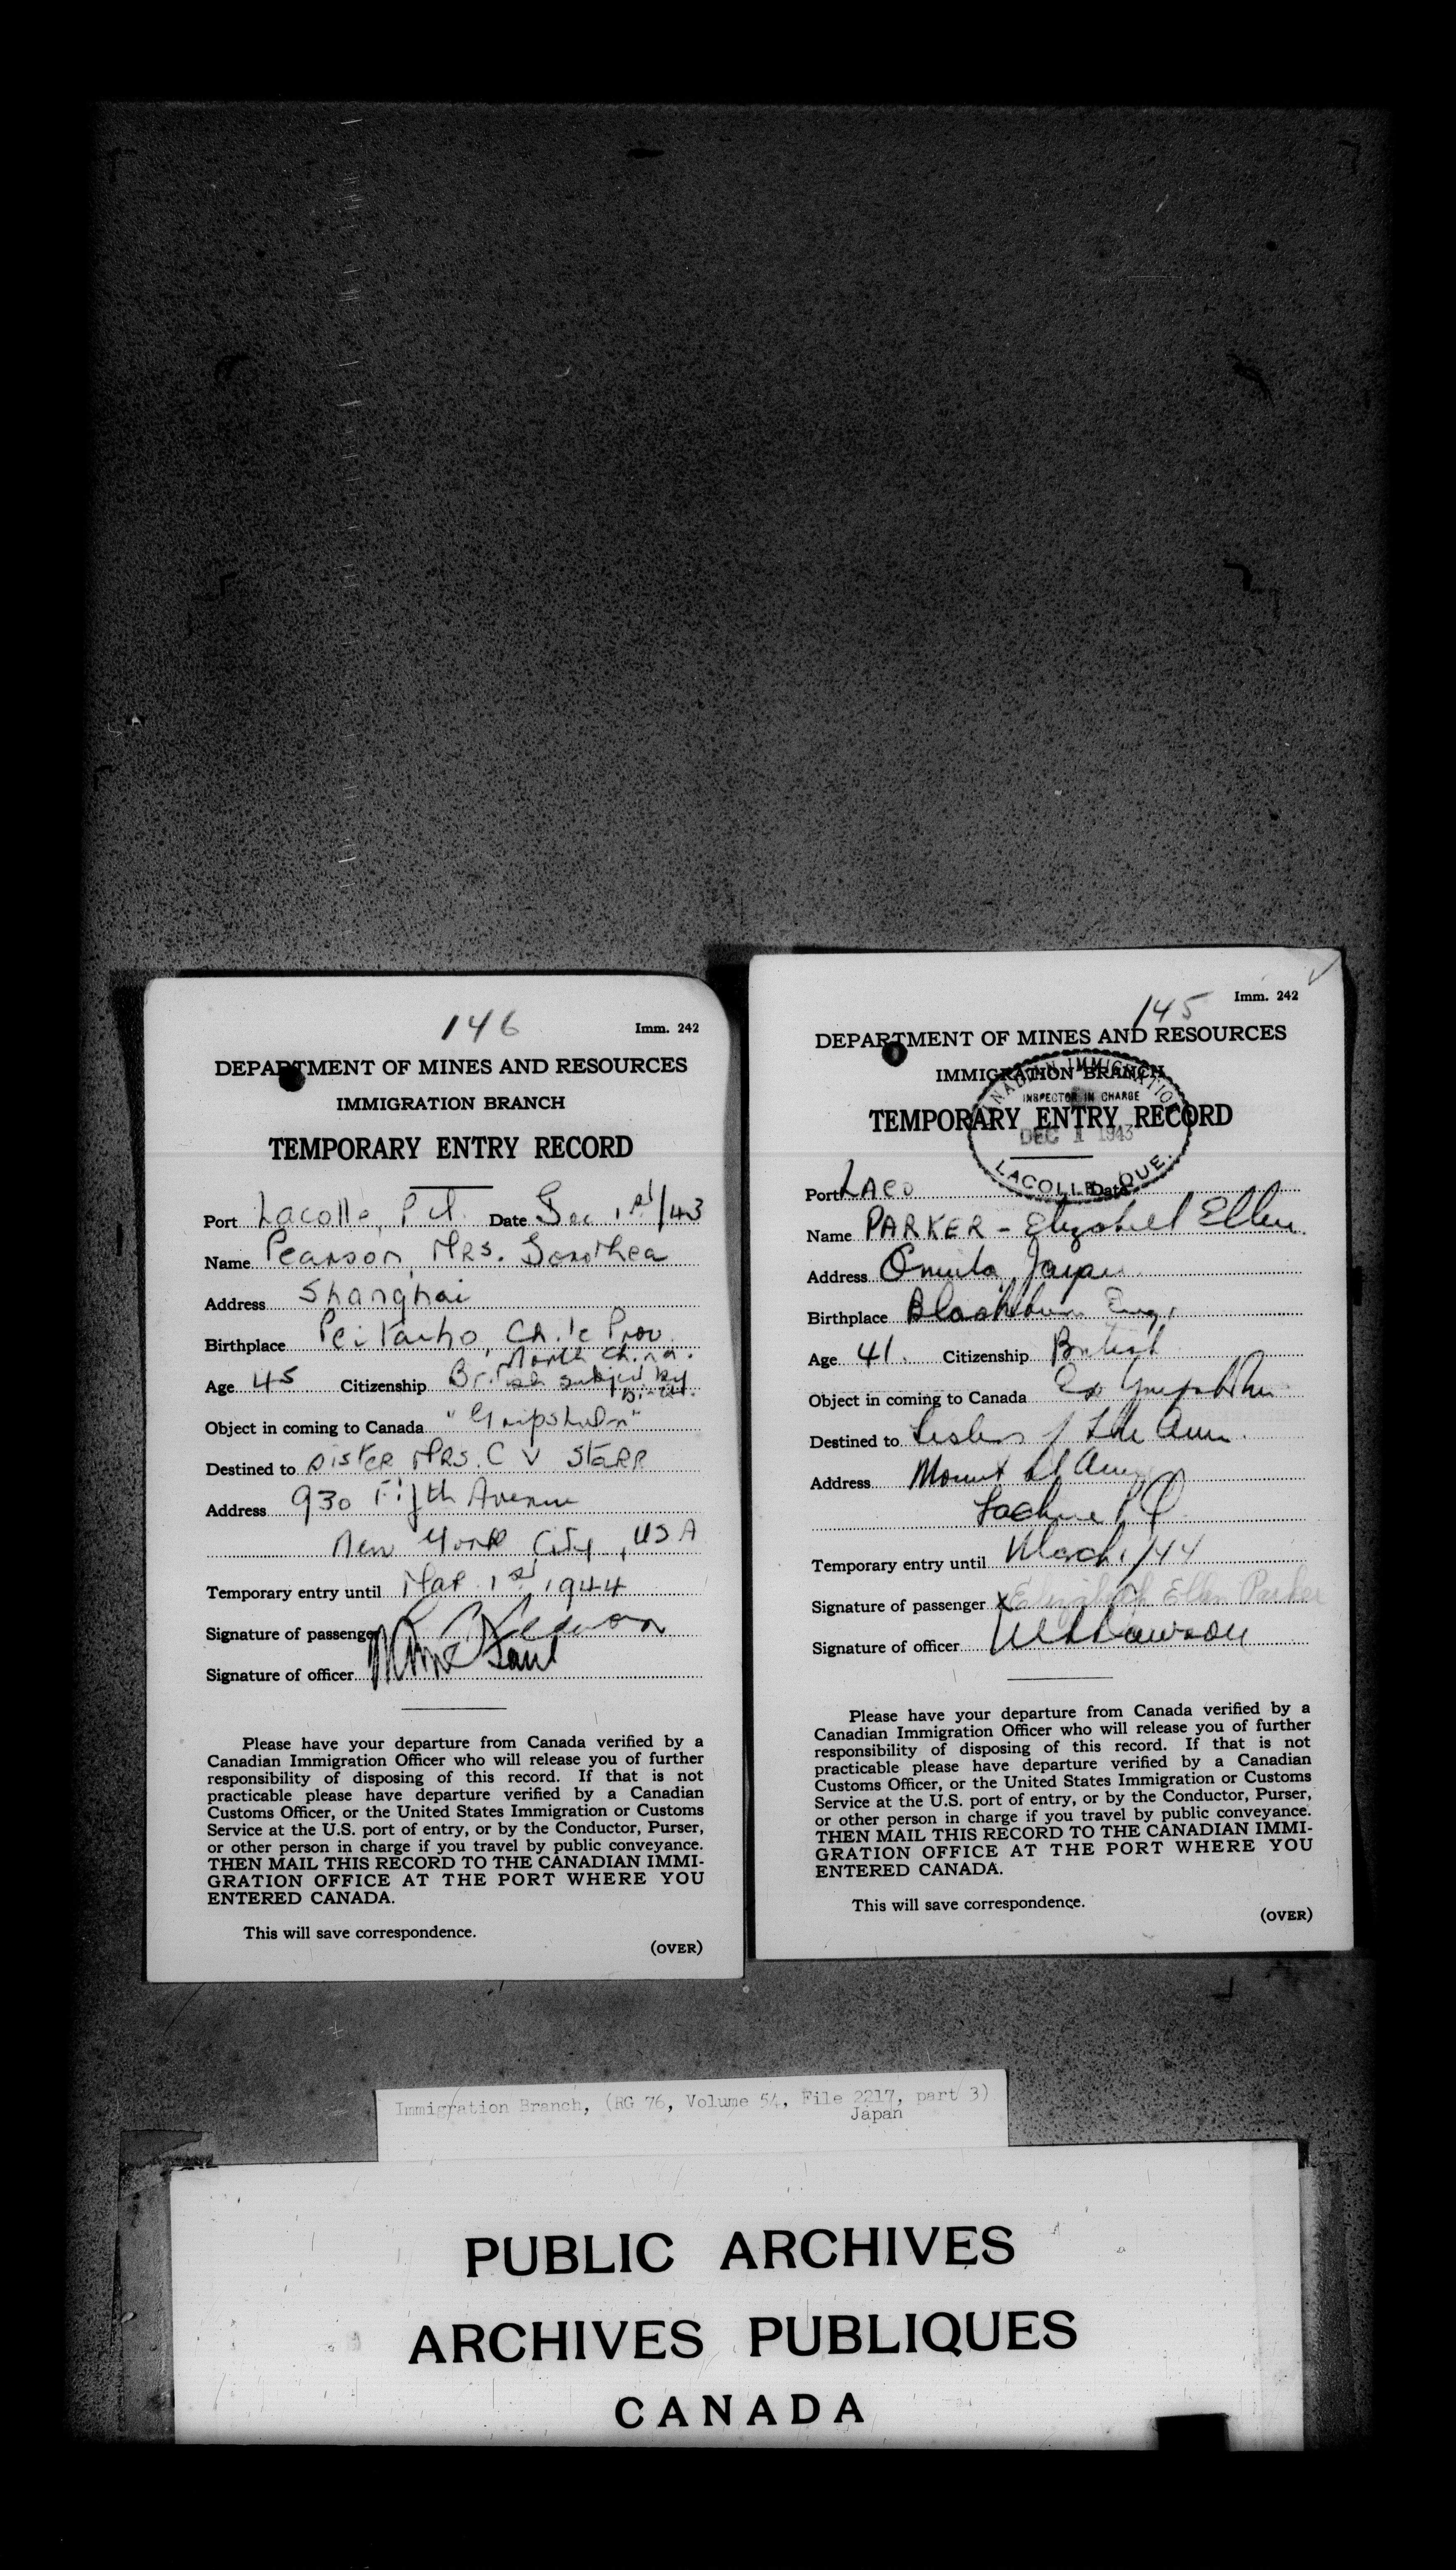 146
Imm. 242
DEPARTMENT OF MINES AND RESOURCES
IMMIGRATION BRANCH
TEMPORARY ENTRY RECORD
Port Lacolle, Date Dec 1st/43
Name Pearson, MRS. Dorothea
Address Shanghai
Birthplace Peitaiho, Ch.le Prov.
North China.
Age 45 Citizenship British subject by
Birth.
Object in coming to Canada "Gripsholm"
Destined to SISTER MRS. C V STARR
Address 930 Fifth Avenue
New York City, USA
Temporary entry until Mar 1st, 1944
Signature of passenger
Signature of officer
Please have your departure from Canada verified by a
Canadian Immigration Officer who will release you of further
responsibility of disposing of this record. If that is not
practicable please have departure verified by a Canadian
Customs Officer, or the United States Immigration or Customs
Service at the U.S. port of entry, or by the Conductor, Purser,
or other person in charge if you travel by public conveyance.
THEN MAIL THIS RECORD TO THE CANADIAN IMMI-
GRATION OFFICE AT THE PORT WHERE YOU
ENTERED CANADA.
This will save correspondence.
(OVER)
145
Imm. 242
DEPARTMENT OF MINES AND RESOURCES
IMMIGRATION BRANCH
TEMPORARY ENTRY RECORD
CANADIAN IMMIGRATION
INSPECTOR IN CHARGE
DEC 1 1943
LACOLLE QUE.
Port LACO Date
Name PARKER - Elizabeth Ellen
Address Omuta, Japan
Birthplace Blackburn Eng.
Age 41. Citizenship British
Object in coming to Canada Ex Gripsholm
Destined to Sisters of Ste Ann.
Address Mount St Anne
Lachine P Q.
Temporary entry until March 1/44
Signature of passenger x Elizabeth Ellen Parker
Signature of officer Dawson
Please have your departure from Canada verified by a
Canadian Immigration Officer who will release you of further
responsibility of disposing of this record. If that is not
practicable please have departure verified by a Canadian
Customs Officer, or the United States Immigration or Customs
Service at the U.S. port of entry, or by the Conductor, Purser,
or other person in charge if you travel by public conveyance.
THEN MAIL THIS RECORD TO THE CANADIAN IMMI-
GRATION OFFICE AT THE PORT WHERE YOU
ENTERED CANADA.
This will save correspondence.
(OVER)
Immigration Branch, (RG 76, Volume 54, File 2217, part 3)
Japan
PUBLIC ARCHIVES
ARCHIVES PUBLIQUES
CANADA